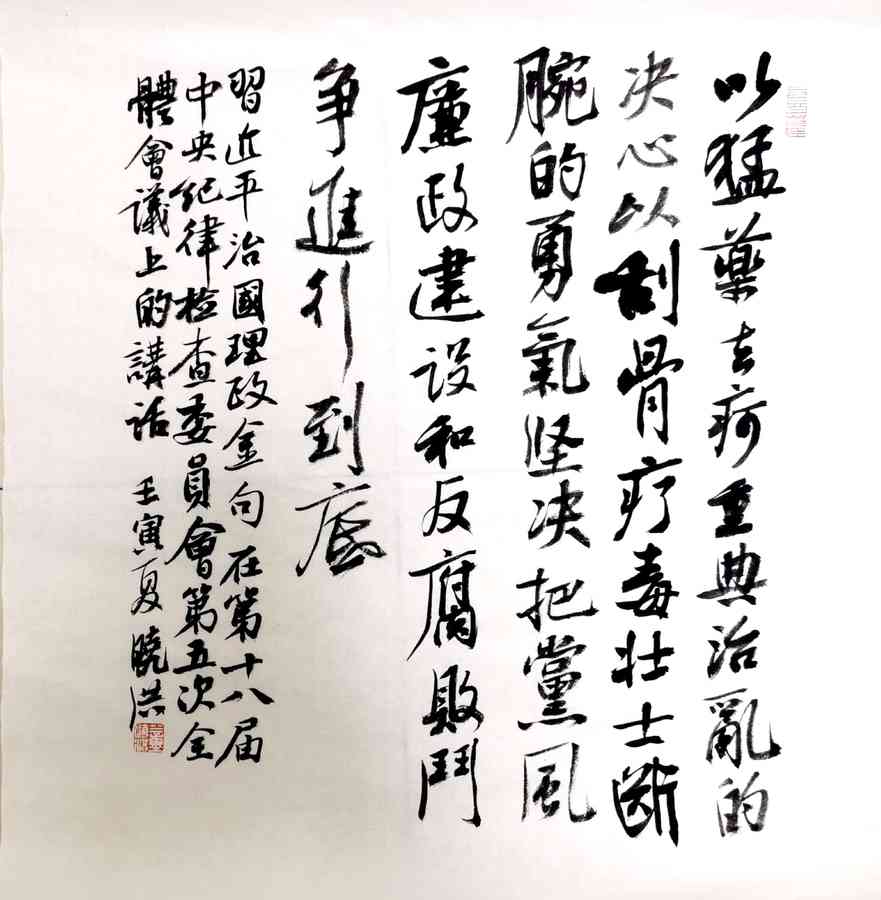 以猛藥去疴重典治亂的
决心以刮骨疗毒壮士斷
腕的勇氣坚决把黨風
廉政建设和反腐败鬥
争進行到底
習近平治國理政金句在第十八届
中央纪律检查委員會第五次全
體會議上的講话 壬寅夏 曉洪